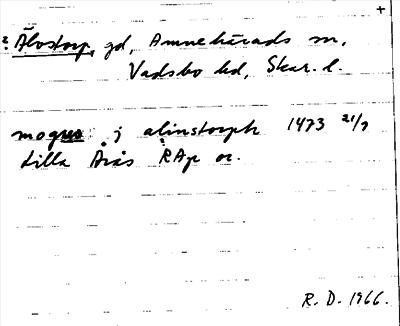 +
? Älvstorp, gd, Amnehärads sn,
Vadsbo hd, Skar. l.
mogens j alinstorph 1473 21/7
Lilla Årås RAp or.
R. D. 1966.